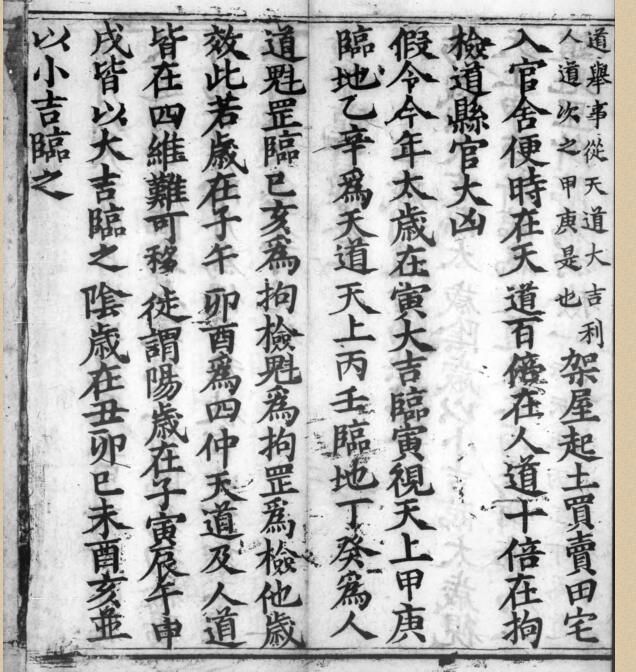 道舉事從天道大吉利
人道次之甲庚是也
架屋起土買賣田宅
入官舍便時在天道百倍在人道十倍在拘
檢道縣官大凶
假令今年太歲在寅大吉臨寅視天上甲庚
臨地乙辛爲天道天上丙壬臨地丁癸爲人
道魁罡臨巳亥爲拘檢魁爲拘罡爲檢他歲
效此若歲在子午卯酉爲四仲天道及人道
皆在四維難可移徙謂陽歲在子寅辰午申
戌皆以大吉臨之陰歲在丑卯巳未酉亥並
以小吉臨之